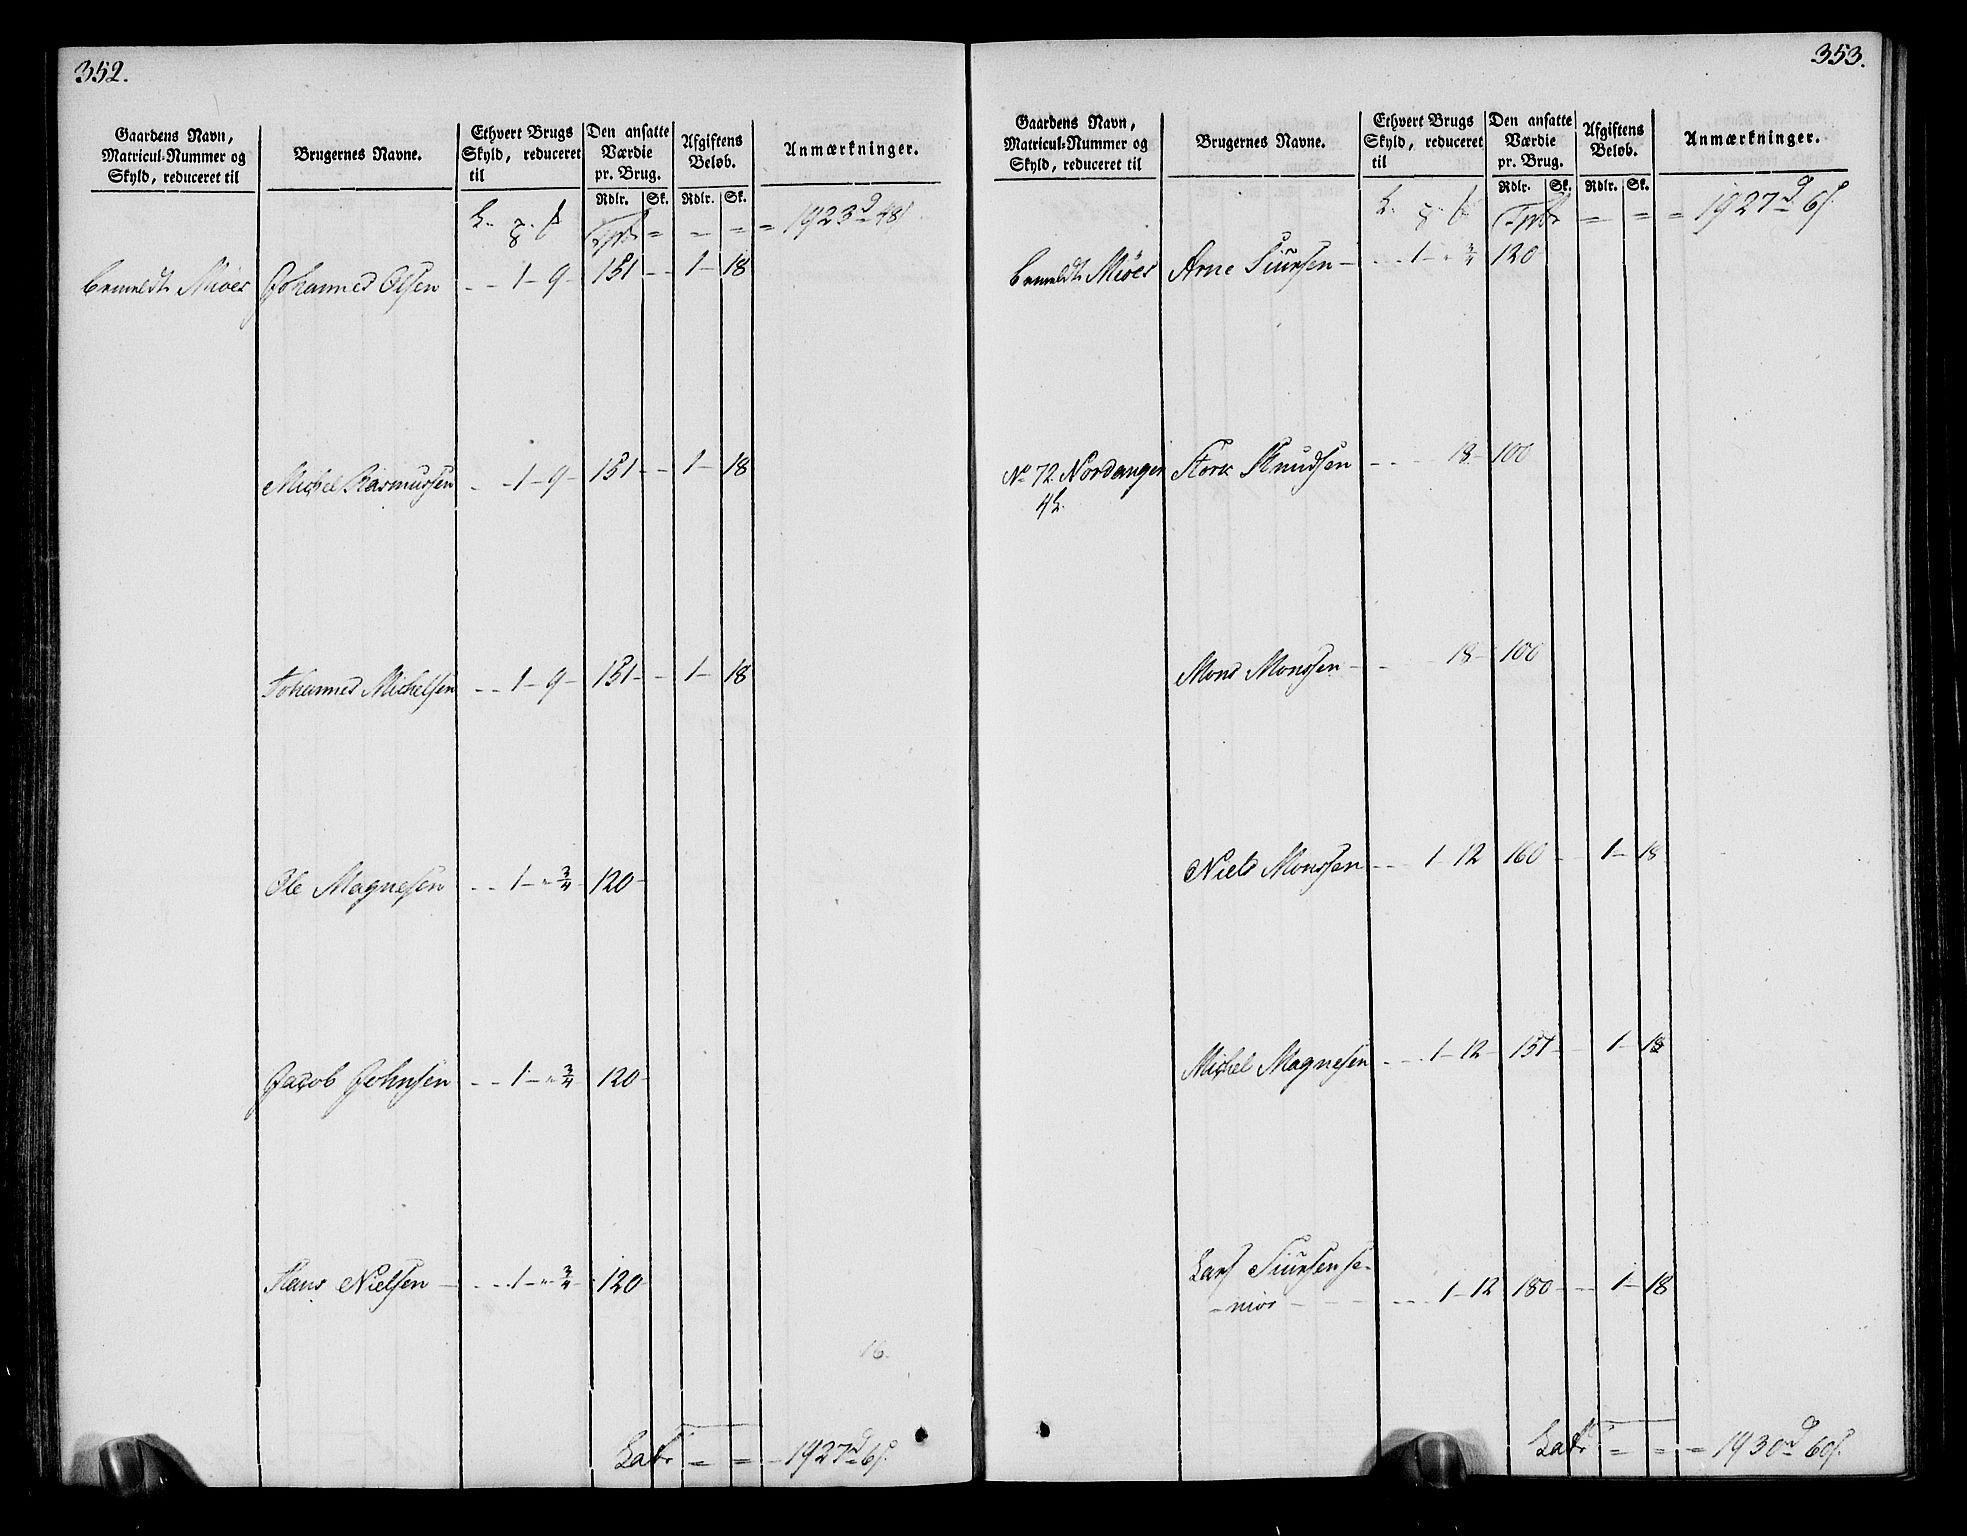 352.
Gaardens Navn, Matricul-Nummer og Skyld, reduceret til | Brugernes Navne. | Ethvert Brugs Skyld, reduceret til | Den ansatte Værdie pr. Brug. Rdlr. Sk. | Afgiftens Beløb. Rdlr. Sk. | Anmærkninger.
Tpt = = = = 1923 d 48 s
bemeldte Miøes Johannes Olsen - - 1 - 9 - 151 - - 1 - 18
Michel Rasmussen - - 1 - 9 - 151 - - 1 - 18
Johannes Michelsen - - 1 - 9 - 151 - - 1 - 18
Ole Magnesen - - 1 - " 3/4 - 120 -
Jacob Johnsen - - 1 - " 3/4 120 -
Hans Nielsen - - - 1 - " 3/4 - 120 -
16.
Lat. = = - 1927 d 6 s.
353.
Gaardens Navn, Matricul-Nummer og Skyld, reduceret til | Brugernes Navne. | Ethvert Brugs Skyld, reduceret til | Den ansatte Værdie pr. Brug. Rdlr. Sk. | Afgiftens Beløb. Rdlr. Sk. | Anmærkninger.
Tpt = = = 1927 d 6 s.
bemeldte Miøes Arne Siursen - - - 1 - " 3/4 120
No 72. Nordanger Stork Knudsen - - - 18 - 100
Mons Monssen - - 18 - 100
Niels Monssen - - 1 - 12 160 - - 1 - 18
Michel Magnesen - - - 1 - 12 - 151 - - 1 - 18
Lars Siursen se-
- nior - - - - - - 1 - 12 180 - - - 1 - 18
Lat. = = = 1930 d 60 s.